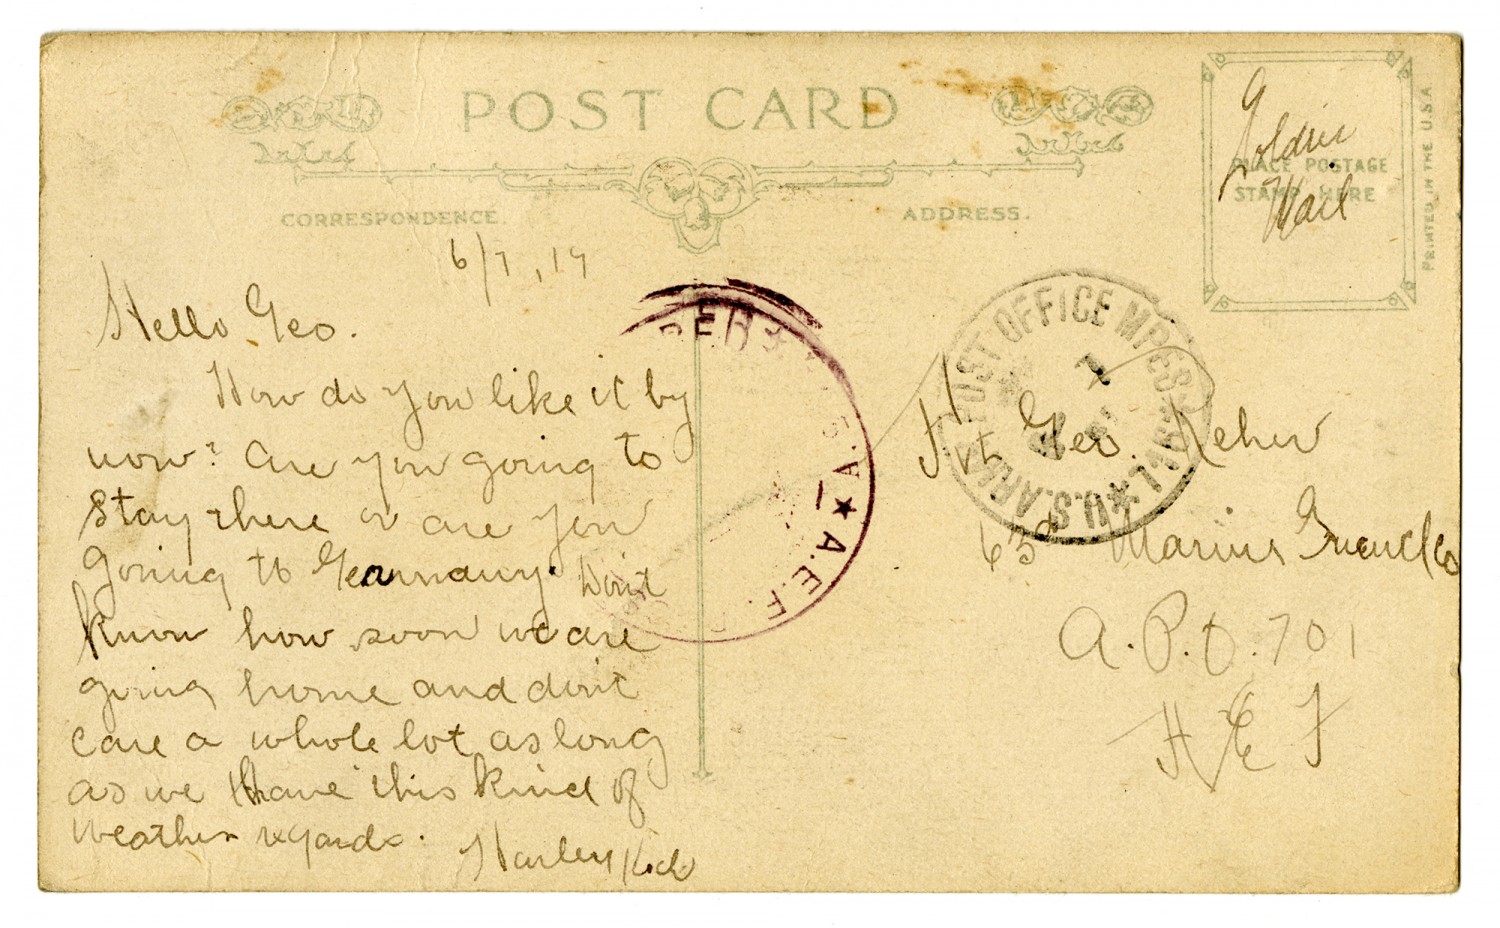 POST CARD
CORRESPONDENCE.
ADDRESS.
PLACE POSTAGE
STAMP HERE
PRINTED IN THE U.S.A.
Soldier
Mail
6/7, 19
Hello Geo.
How do you like it by
now? are you going to
stay there or are you
going to Germany. Don't
know how soon we are
going home and don't
care a whole lot as long
as we have this kind of
weather regards.
Harley
POST OFFICE
U.S. ARMY
A.E.F.
Pvt Geo.
63rd Marine
A.P.O. 701
A E F